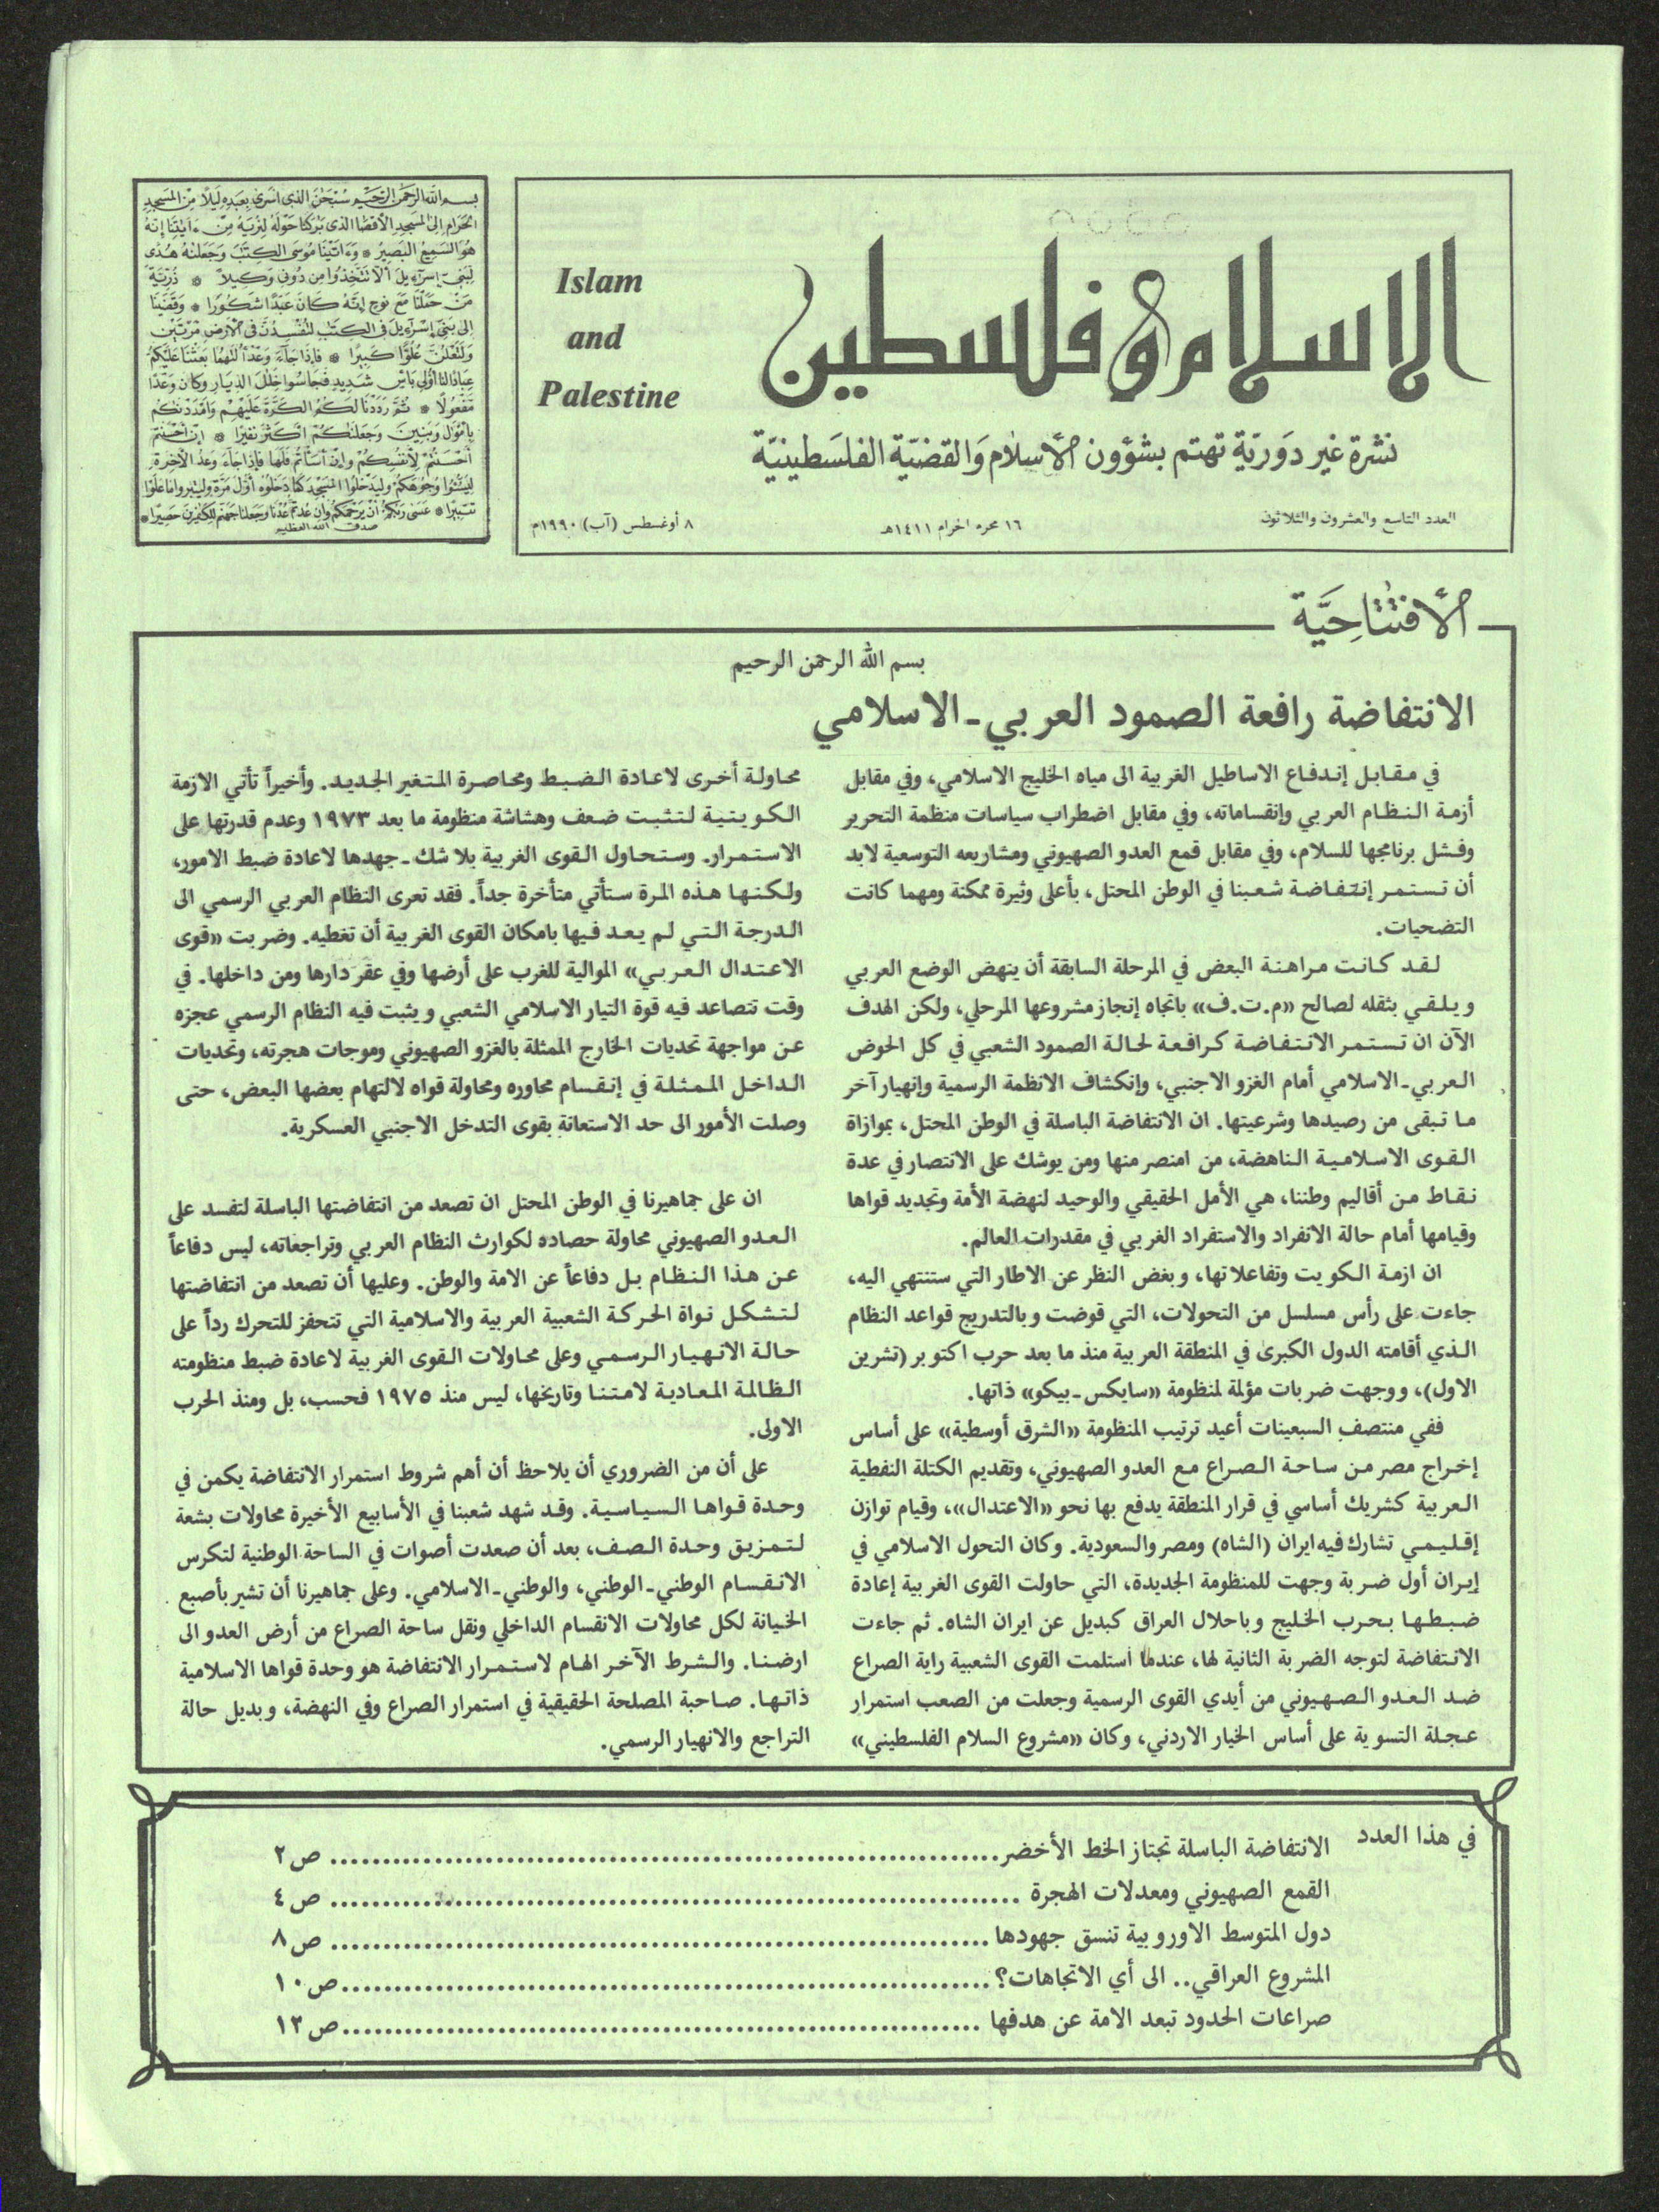 بسم الله الرحمن الرحيم سُبْحَٰنَ الذى أسرى بعبده ليلاً من المسجد
الحرام إلى المسجد الأقصا الذى بٰركنا حوله لنريه من ءايٰتنا إنه
هو السميع البصير * وءاتينا موسى الكتٰب وجعلنٰه هدى
لبنى إسرآءيل ألا تتخذوا من دونى وكيلاً * ذرية
من حملنا مع نوح إنه كان عبدًا شكورا * وقضينا
إلى بنى إسرآءيل فى الكتٰب لتفسدن فى الأرض مرتين
ولتعلن علوًا كبيرًا * فإذا جآء وعد أولٰهما بعثنا عليكم
عبادًا لنا أولى بأس شديد فجاسوا خلٰل الديار وكان وعدًا
مفعولًا * ثم رددنا لكم الكرة عليهم وأمددنٰكم
بأموٰل وبنين وجعلنٰكم أكثر نفيرًا * إن أحسنتم
أحسنتم لأنفسكم وإن أسأتم فلها فإذا جآء وعد الأخرة
ليسئوا وجوهكم وليدخلوا المسجد كما دخلوه أول مرة وليتبروا ما علوا
تتبيرًا * عسى ربكم أن يرحمكم وإن عدتم عدنا وجعلنا جهنم للكٰفرين حصيرًا *
صدق الله العظيم
Islam
and
Palestine
الاسلام وفلسطين
نشرة غير دورية تهتم بشؤون الأسلام والقضية الفلسطينية
العدد التاسع والعشرون والثلاثون
١٦ محرم الحرام ١٤١١هـ
٨ أوغسطس (آب) ١٩٩٠م
الأفتتاحية
بسم الله الرحمن الرحيم
الانتفاضة رافعة الصمود العربي ـ الاسلامي
في مقابل إندفاع الاساطيل الغربية الى مياه الخليج الاسلامي، وفي مقابل
أزمة النظام العربي وإنقساماته، وفي مقابل اضطراب سياسات منظمة التحرير
وفشل برنامجها للسلام، وفي مقابل قمع العدو الصهيوني ومشاريعه التوسعية لابد
أن تستمر إنتفاضة شعبنا في الوطن المحتل، بأعلى وثيرة ممكنة ومهما كانت
التضحيات.
لقد كانت مراهنة البعض في المرحلة السابقة أن ينهض الوضع العربي
ويلقي بثقله لصالح «م.ت.ف» باتجاه إنجاز مشروعها المرحلي، ولكن الهدف
الآن ان تستمر الانتفاضة كرافعة لحالة الصمود الشعبي في كل الحوض
العربي ـ الاسلامي أمام الغزو الاجنبي، وإنكشاف الانظمة الرسمية وإنهيار آخر
ما تبقى من رصيدها وشرعيتها. ان الانتفاضة الباسلة في الوطن المحتل، بموازاة
القوى الاسلامية الناهضة، من امنصر منها ومن يوشك على الانتصار في عدة
نقاط من أقاليم وطننا، هي الأمل الحقيقي والوحيد لنهضة الأمة وتجديد قواها
وقيامها أمام حالة الانفراد والاستفراد الغربي في مقدرات العالم.
ان ازمة الكويت وتفاعلاتها، وبغض النظر عن الاطار التي ستنتهي اليه،
جاءت على رأس مسلسل من التحولات، التي قوضت وبالتدريج قواعد النظام
الذي أقامته الدول الكبرى في المنطقة العربية منذ ما بعد حرب اكتوبر (تشرين
الاول)، ووجهت ضربات مؤلمة لمنظومة «سايكس ـ بيكو» ذاتها.
ففي منتصف السبعينات أعيد ترتيب المنظومة «الشرق أوسطية» على أساس
إخراج مصر من ساحة الصراع مع العدو الصهيوني، وتقديم الكتلة النفطية
العربية كشريك أساسي في قرار المنطقة يدفع بها نحو «الاعتدال»، وقيام توازن
إقليمي تشارك فيه ايران (الشاه) ومصر والسعودية. وكان التحول الاسلامي في
إيران أول ضربة وجهت للمنظومة الجديدة، التي حاولت القوى الغربية إعادة
ضبطها بحرب الخليج وباحلال العراق كبديل عن ايران الشاه. ثم جاءت
الانتفاضة لتوجه الضربة الثانية لها، عندما أستلمت القوى الشعبية راية الصراع
ضد العدو الصهيوني من أيدي القوى الرسمية وجعلت من الصعب استمرار
عجلة التسوية على أساس الخيار الاردني، وكان «مشروع السلام الفلسطيني»
محاولة أخرى لاعادة الضبط ومحاصرة المتغير الجديد. وأخيراً تأتي الازمة
الكويتية لتثبت ضعف وهشاشة منظومة ما بعد ١٩٧٣ وعدم قدرتها على
الاستمرار. وستحاول القوى الغربية بلا شك ـ جهدها لاعادة ضبط الامور،
ولكنها هذه المرة ستأتي متأخرة جداً. فقد تعرى النظام العربي الرسمي الى
الدرجة التي لم يعد فيها بامكان القوى الغربية أن تغطيه. وضربت «قوى
الاعتدال العربي» الموالية للغرب على أرضها وفي عقر دارها ومن داخلها. في
وقت تتصاعد فيه قوة التيار الاسلامي الشعبي ويثبت فيه النظام الرسمي عجزه
عن مواجهة تحديات الخارج الممثلة بالغزو الصهيوني وموجات هجرته، وتحديات
الداخل الممثلة في إنقسام محاوره ومحاولة قواه لالتهام بعضها البعض، حتى
وصلت الأمور الى حد الاستعانة بقوى التدخل الاجنبي العسكرية.
ان على جماهيرنا في الوطن المحتل ان تصعد من انتفاضتها الباسلة لتفسد على
العدو الصهيوني محاولة حصاده لكوارث النظام العربي وتراجعاته، ليس دفاعاً
عن هذا النظام بل دفاعاً عن الامة والوطن. وعليها أن تصعد من انتفاضتها
لتشكل نواة الحركة الشعبية العربية والاسلامية التي تتحفز للتحرك رداً على
حالة الانهيار الرسمي وعلى محاولات القوى الغربية لاعادة ضبط منظومته
الظالمة المعادية لامتنا وتاريخها، ليس منذ ١٩٧٥ فحسب، بل ومنذ الحرب
الاولى.
على أن من الضروري أن يلاحظ أن أهم شروط استمرار الانتفاضة يكمن في
وحدة قواها السياسية. وقد شهد شعبنا في الأسابيع الأخيرة محاولات بشعة
لتمزيق وحدة الصف، بعد أن صعدت أصوات في الساحة الوطنية لتكرس
الانقسام الوطني ـ الوطني، والوطني ـ الاسلامي. وعلى جماهيرنا أن تشير بأصبع
الخيانة لكل محاولات الانقسام الداخلي ونقل ساحة الصراع من أرض العدو الى
ارضنا. والشرط الآخر الهام لاستمرار الانتفاضة هو وحدة قواها الاسلامية
ذاتها. صاحبة المصلحة الحقيقية في استمرار الصراع وفي النهضة، وبديل حالة
التراجع والانهيار الرسمي.
في هذا العدد
الانتفاضة الباسلة تجتاز الخط الأخضر ........ ص ٢
القمع الصهيوني ومعدلات الهجرة ........ ص ٤
دول المتوسط الاوروبية تنسق جهودها ........ ص ٨
المشروع العراقي.. الى أي الاتجاهات؟ ........ ص ١٠
صراعات الحدود تبعد الامة عن هدفها ........ ص ١٢